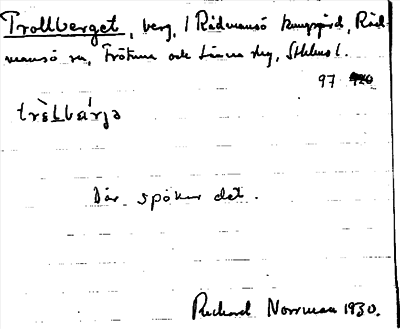 Trollberget, berg, i Rådmansö kungsgård, Råd-
mansö sn, Frötuna och Länna skg, Sthlms l.
97
trɛ̀Lbárjə
Där spökar det.
Richard Norrman 1930.